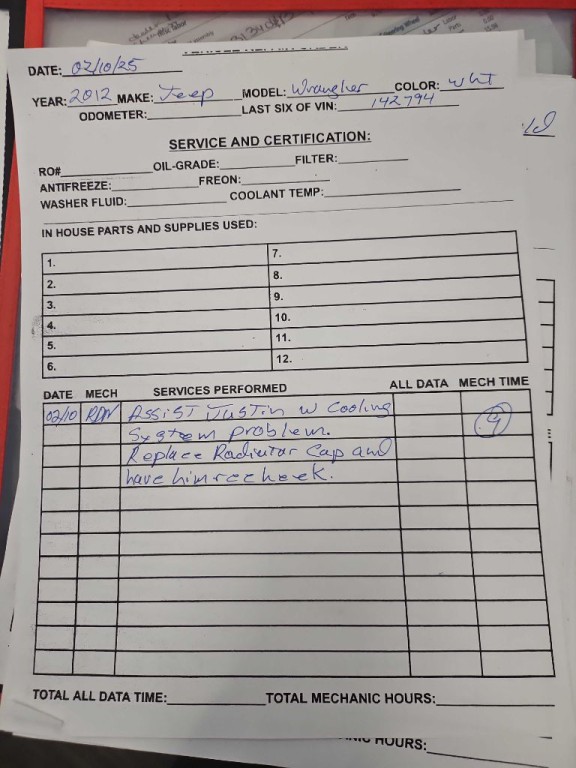 DATE: 02/10/25
YEAR: 2012 MAKE: Jeep MODEL: Wrangler COLOR: WhT
ODOMETER: LAST SIX OF VIN: 142794
SERVICE AND CERTIFICATION:
RO# OIL-GRADE: FILTER:
ANTIFREEZE: FREON:
WASHER FLUID: COOLANT TEMP:
IN HOUSE PARTS AND SUPPLIES USED:
1. 7.
2. 8.
3. 9.
4. 10.
5. 11.
6. 12.
DATE MECH SERVICES PERFORMED ALL DATA MECH TIME
02/10 RDN Assist Justin w Cooling
System problem.
Replace Radiator Cap and
have him recheck.
TOTAL ALL DATA TIME: TOTAL MECHANIC HOURS:
HOURS: